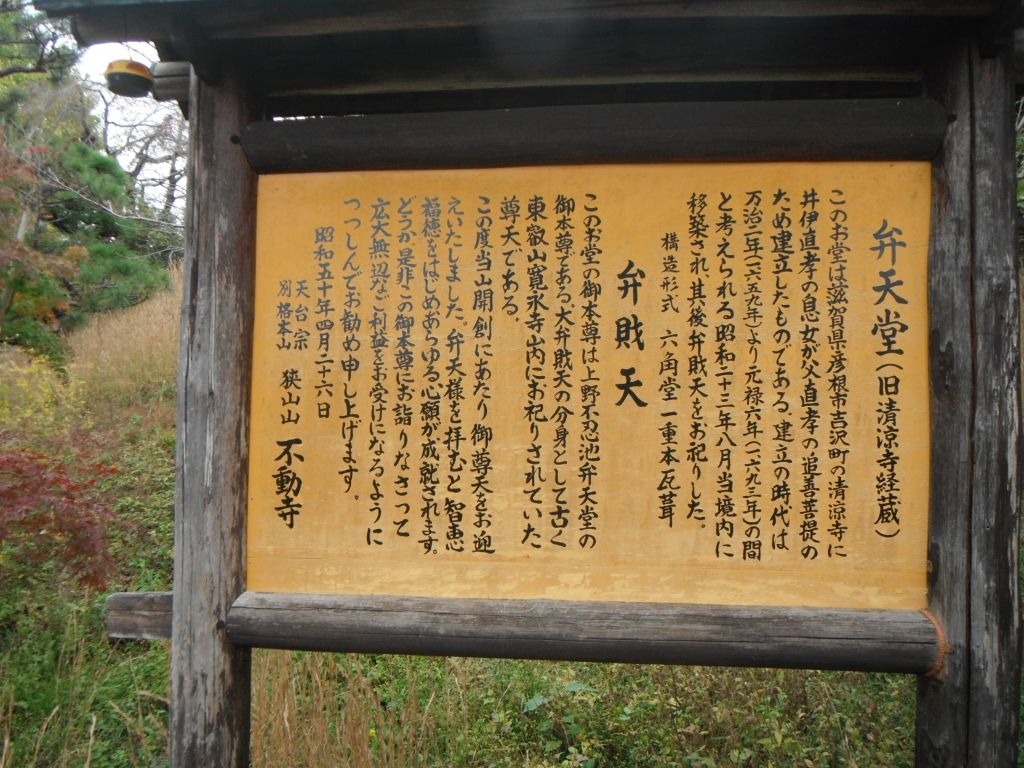 弁天堂(旧清涼寺経蔵)
このお堂は滋賀県彦根市古沢町の清涼寺に
井伊直孝の息女が父直孝の追善菩提の
ため建立したものである。建立の時代は
万治二年(一六五九年)より元禄六年(一六九三年)の間
と考えられる昭和二十三年八月当境内に
移築され、其後弁財天をお祀りした。
構造形式 六角堂 一重本瓦葺
弁財天
このお堂の御本尊は上野不忍池弁天堂の
御本尊である、大弁財天の分身として古く
東叡山寛永寺山内にお祀りされていた
尊天である。
この度当山開創にあたり御尊天をお迎
えいたしました。弁天様を拝むと智恵
福徳をはじめあらゆる心願が成就されます。
どうか是非この御本尊にお詣りなさって
広大無辺なご利益をお受けになるように
つつしんでお勧め申し上げます。
昭和五十年四月二十六日
天台宗
別格本山 狭山山 不動寺